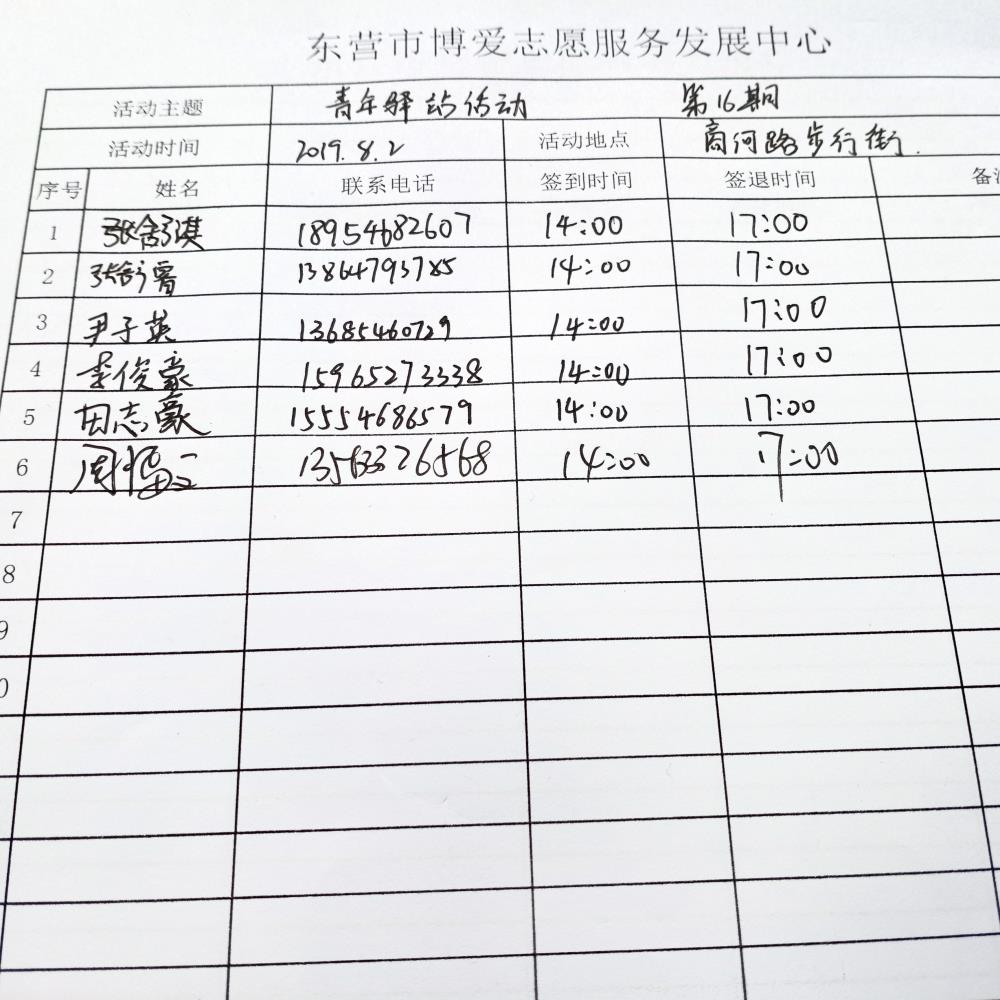 东营市博爱志愿服务发展中心
活动主题 青年驿站活动 第16期
活动时间 2019.8.2 活动地点 商河路步行街.
序号 姓名 联系电话 签到时间 签退时间 备
1 张舒淇 18954682607 14:00 17:00
2 张舒 13864793785 14:00 17:00
3 尹子英 13685460729 14:00 17:00
4 李俊豪 15965273338 14:00 17:00
5 田志豪 15554686579 14:00 17:00
6 周 13563326568 14:00 17:00
7
8
9
0